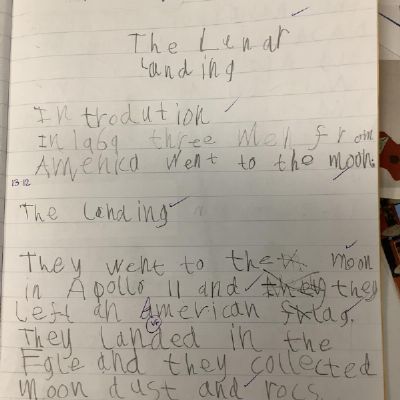 The Lunar
Landing
Introdution
In 1969 three Men from
America Went to the moon.
13.12
The Landing
They went to the moon
in Apollo 11 and they
Left an American flag.
They Landed in the
Egle and they collected
moon dust and rocs.